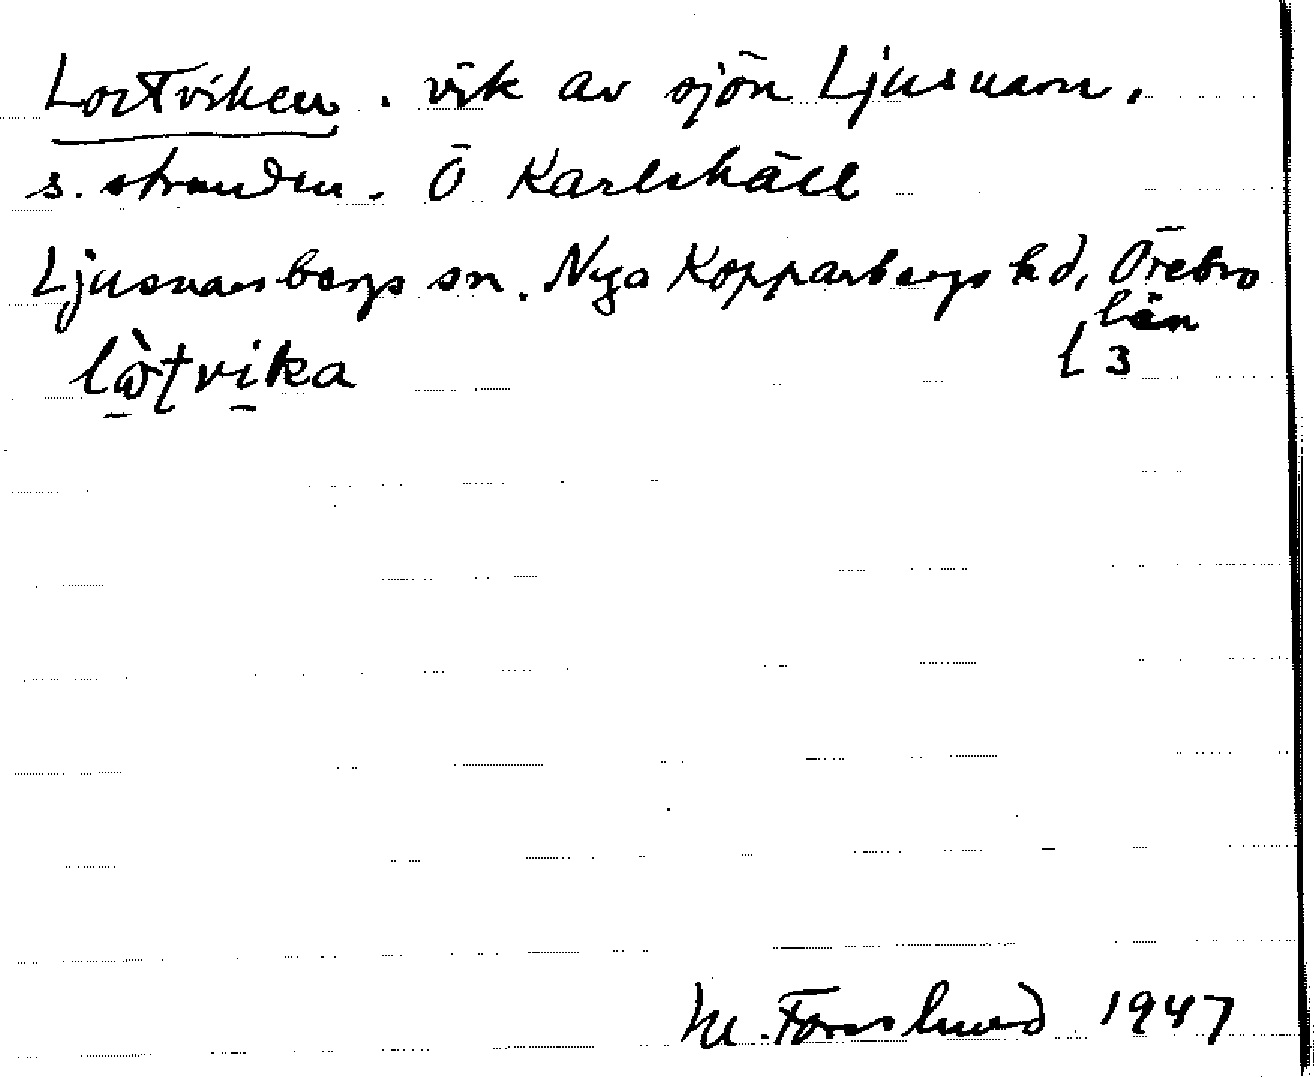 Lortviken. vik av sjön Ljusnaren,
s. stranden. Ö Karlshäll
Ljusnarsbergs sn. Nya Kopparbergs hd, Örebro
län
l 3
M. Forslund 1947